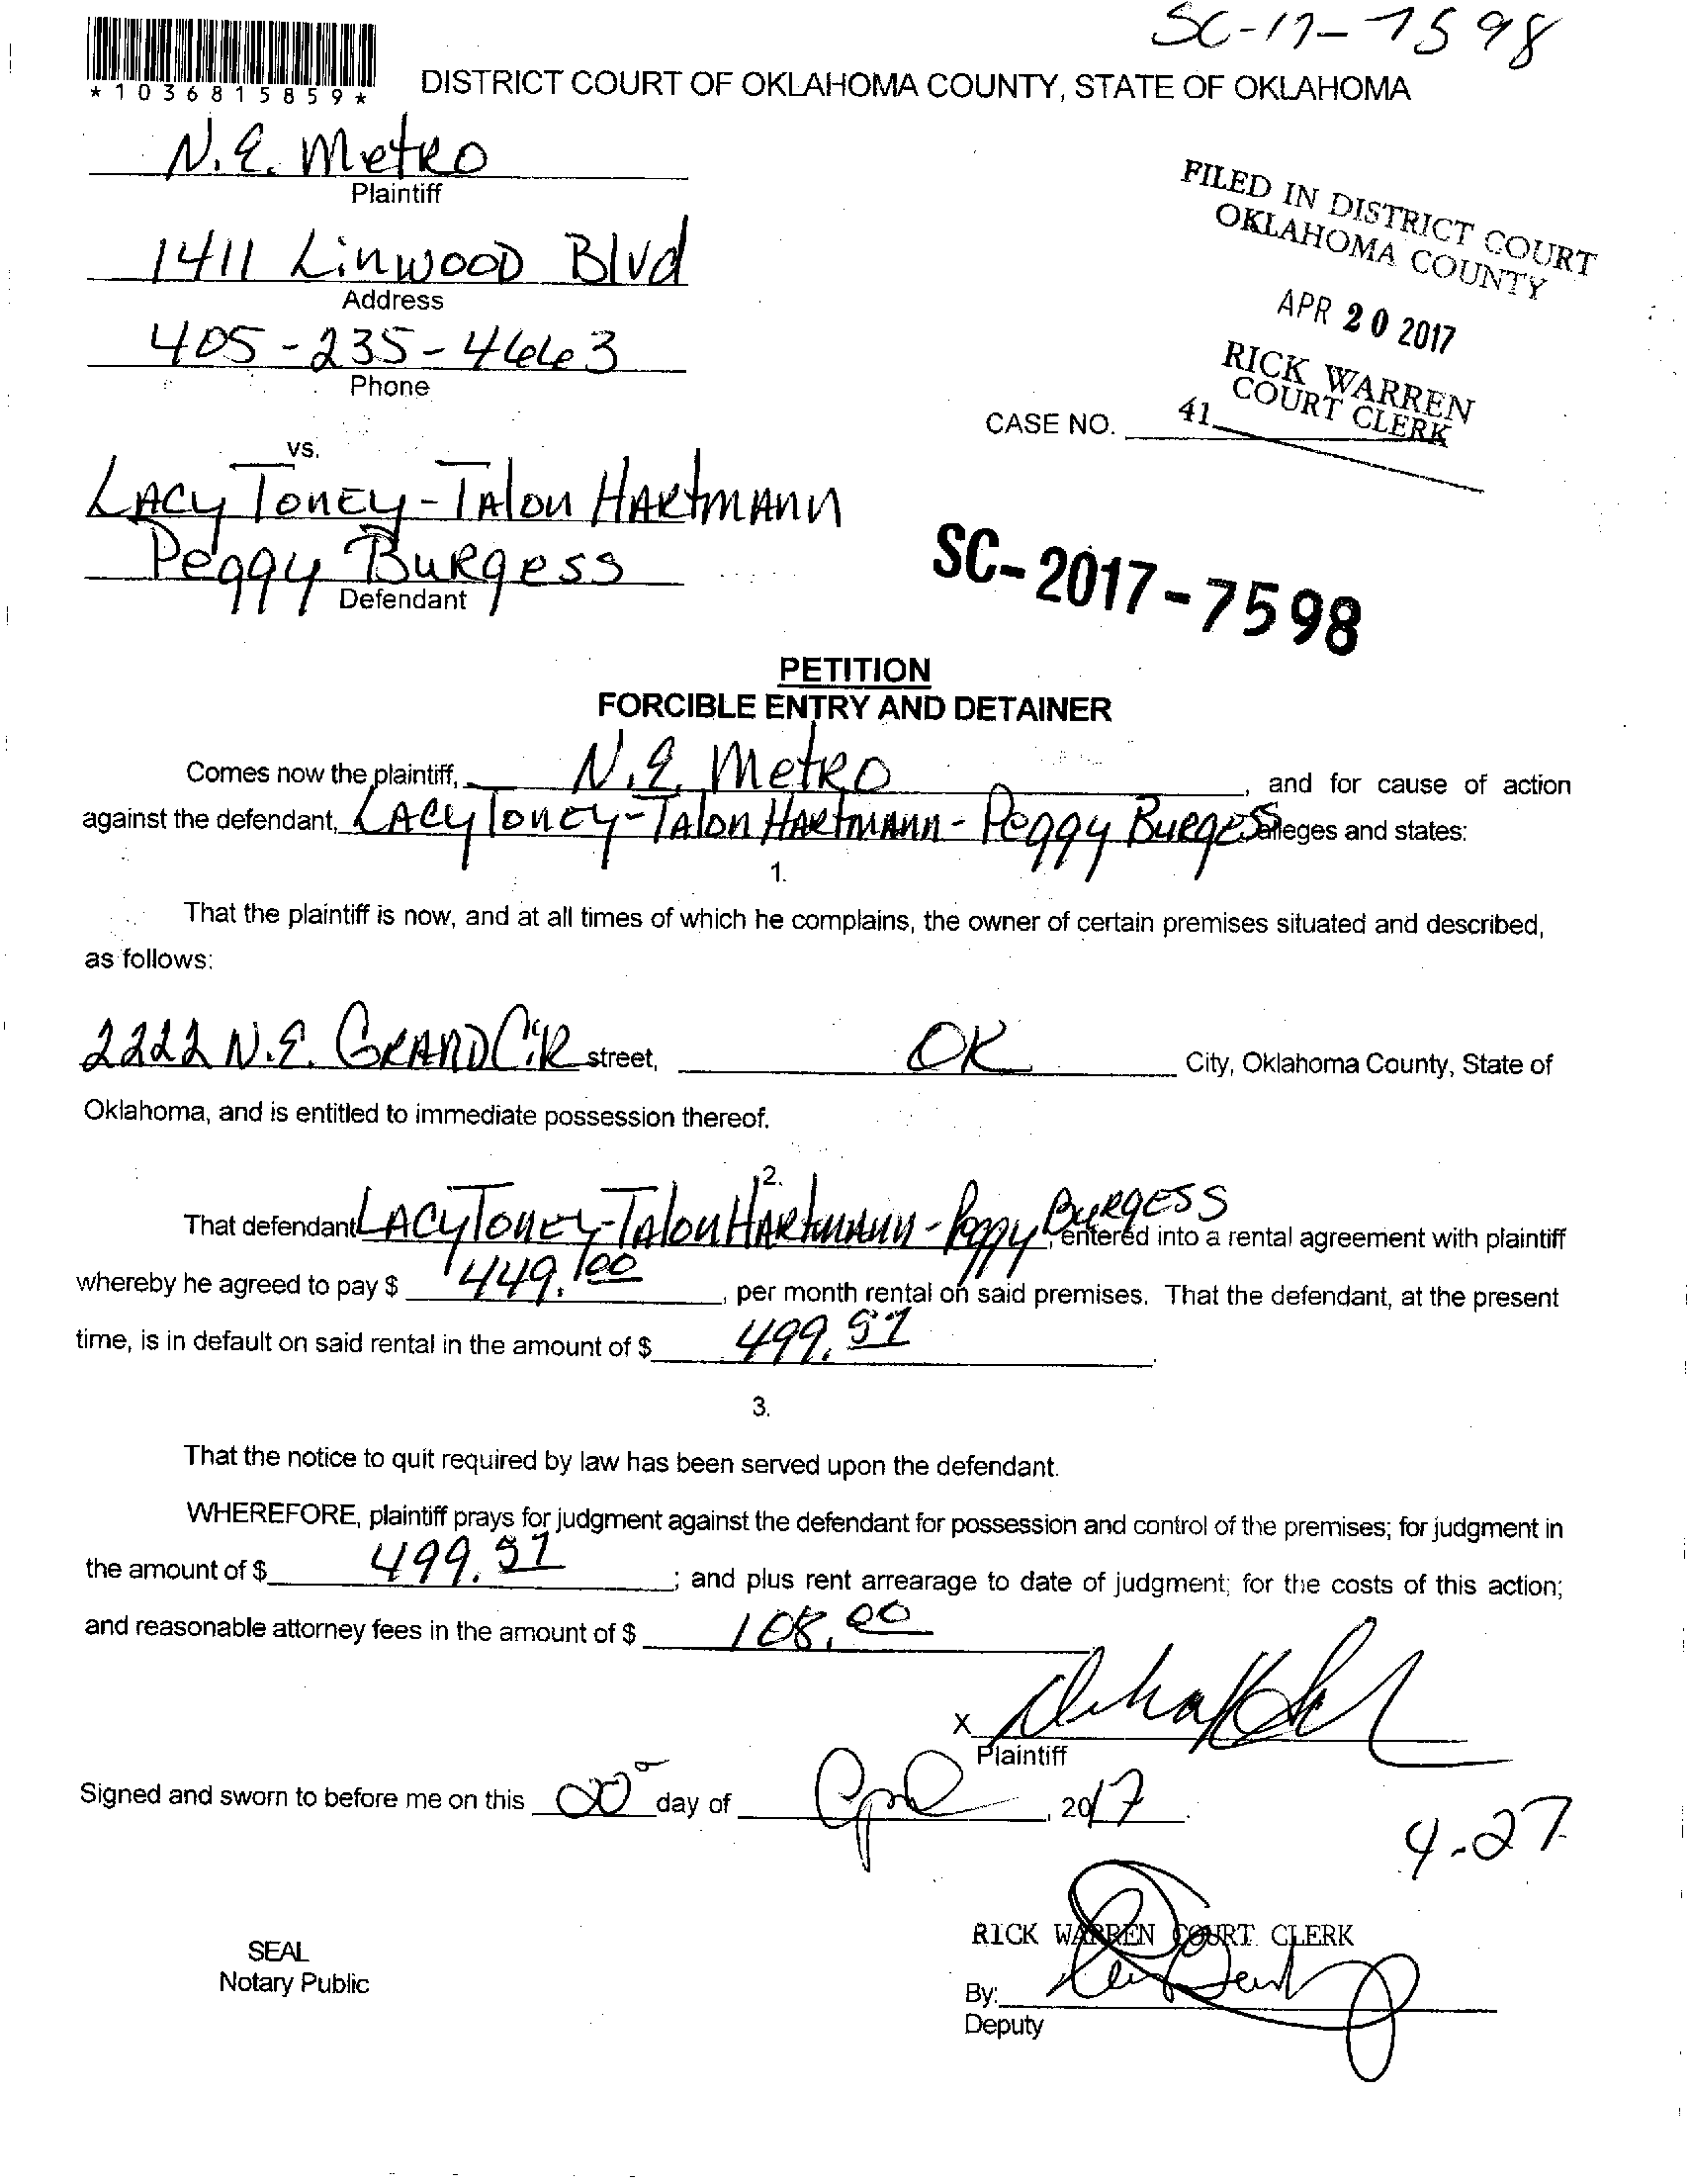 SC-17-7598
*1036815859*
DISTRICT COURT OF OKLAHOMA COUNTY, STATE OF OKLAHOMA
N.E. Metro
Plaintiff
1411 Linwood Blvd
Address
405-235-4663
Phone
FILED IN DISTRICT COURT
OKLAHOMA COUNTY
APR 20 2017
RICK WARREN
COURT CLERK
41
CASE NO.
vs.
Lacy Toney-Talon Hartmann
Peggy Burgess
Defendant
SC-2017-7598
PETITION
FORCIBLE ENTRY AND DETAINER
Comes now the plaintiff, N.E. Metro, and for cause of action
against the defendant, Lacy Toney-Talon Hartmann-Peggy Burgess alleges and states:
1.
That the plaintiff is now, and at all times of which he complains, the owner of certain premises situated and described,
as follows:
2222 N.E. Grand Cir street, OK City, Oklahoma County, State of
Oklahoma, and is entitled to immediate possession thereof.
2.
That defendant Lacy Toney-Talon Hartmann-Peggy Burgess, entered into a rental agreement with plaintiff
whereby he agreed to pay $ 449.00, per month rental on said premises. That the defendant, at the present
time, is in default on said rental in the amount of $ 499.51.
3.
That the notice to quit required by law has been served upon the defendant.
WHEREFORE, plaintiff prays for judgment against the defendant for possession and control of the premises; for judgment in
the amount of $ 499.51; and plus rent arrearage to date of judgment; for the costs of this action;
and reasonable attorney fees in the amount of $ 108.00
X
Plaintiff
Signed and sworn to before me on this 20 day of April, 2017.
4-27
SEAL
Notary Public
RICK WARREN COURT CLERK
By:
Deputy